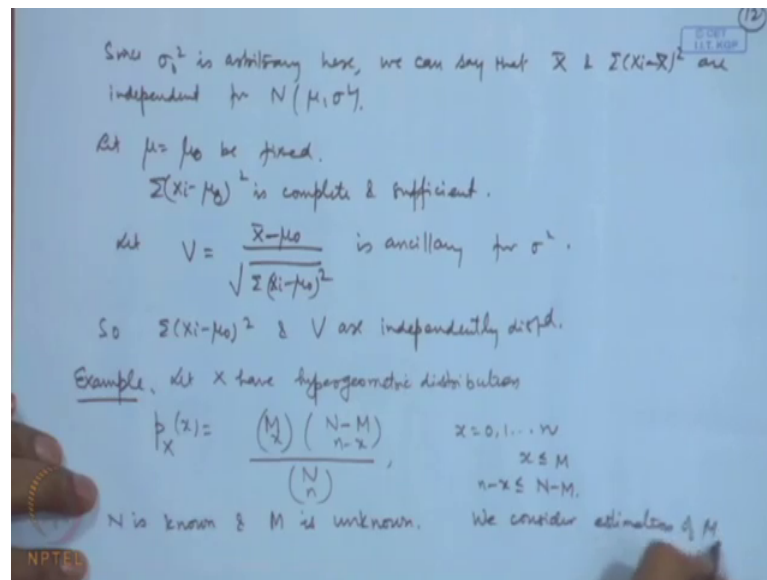 12
© CET
I.I.T. KGP
Since σ₀² is arbitrary here, we can say that X̄ & Σ(Xi-X̄)² are
independent for N(μ, σ²).
Let μ = μ₀ be fixed.
Σ(Xi-μ₀)² is complete & sufficient.
Let V = (X̄-μ₀) / √Σ(Xi-μ₀)² is ancillary for σ².
So Σ(Xi-μ₀)² & V are independently distd.
Example. Let X have hypergeometric distribution
p_X(x) = (M x)(N-M n-x) / (N n), x = 0,1...n
x ≤ M
n-x ≤ N-M.
N is known & M is unknown. We consider estimation of M
NPTEL